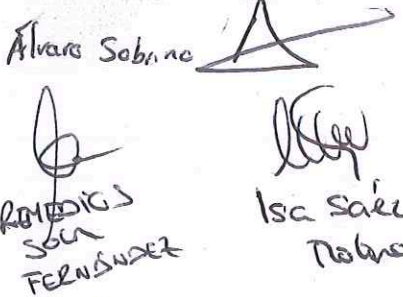 Álvaro Sobrino
REMEDIOS
SOLA
FERNÁNDEZ
Isa Sáez